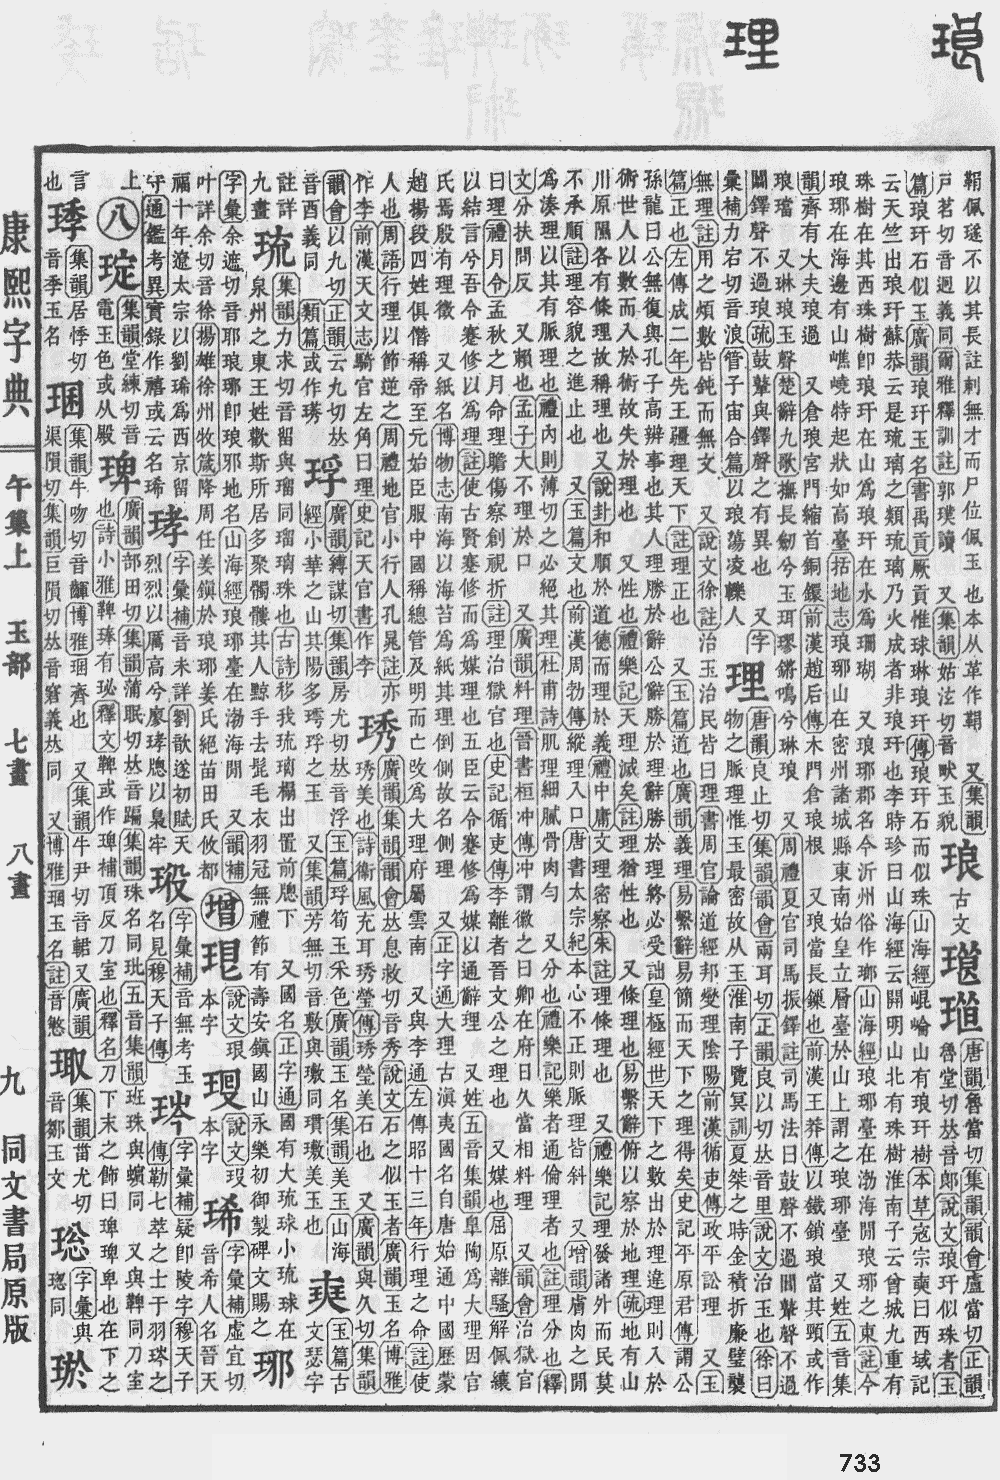 琅
理
鞙佩璲不以其長註刺無才而尸位佩玉 也本从革作鞙 又集韻
戸茗切音迥義同爾雅釋訓註郭璞讀 又集韻姑泫切音畎玉貌
琅 古文 𤨜 𤦴
唐韻魯當切集韻韻會盧當切正韻
魯堂切𠀤音郞說文琅玕似珠者玉
篇琅玕石似玉廣韻琅玕玉名書禹貢厥貢惟球琳琅玕傳琅玕石而似珠山海經崐崘山有琅玕樹本草宼宗奭曰西域記
云天竺出琅玕蘇恭云是琉璃之類琉璃乃火成者非琅玕也李時珍曰山海經云開明山北有珠樹淮南子云曾城九重有
珠樹在其西珠樹卽琅玕在山爲琅玕在水爲珊瑚 又琅琊郡名今沂州俗作瑯山海經琅琊臺在渤海閒琅琊之東註今
琅琊在海邊有山嶕嶢特起狀如高臺括地志琅琊山在密州諸城縣東南始皇立層臺於山上謂之琅琊臺 又姓五音集
韻齊有大夫琅過 又倉琅宮門縮首銅鍰前漢趙后傳木門倉琅根 又琅當長鏁也前漢王莽傳以鐵鎖琅當其頸或作
琅璫 又琳琅玉聲楚辭九歌撫長劒兮玉珥璆鏘鳴兮琳琅 又周禮夏官司馬振鐸註司馬法曰鼓聲不過閶鼙聲不過
闒鐸聲不過琅疏鼓鼙與鐸聲之有異也 又字
彙補力宕切音浪管子宙合篇以琅蕩凌轢人
理
唐韻良止切集韻韻會兩耳切正韻良以切𠀤音里說文治玉也徐曰
物之脈理惟玉最密故从玉淮南子覽冥訓夏桀之時金積折廉璧襲
無理註用之煩數皆鈍而無文 又說文徐註治玉治民皆曰理書周官論道經邦燮理陰陽前漢循吏傳政平訟理 又玉
篇正也左傳成二年先王疆理天下註理正也 又玉篇道也廣韻義理易繫辭易簡而天下之理得矣史記平原君傳謂公
孫龍曰公無復與孔子高辨事也其人理勝於辭公辭勝於理辭勝於理終必受詘皇極經世天下之數出於理違理則入於
術世人以數而入於術故失於理也 又性也禮樂記天理滅矣註理猶性也 又條理也易繫辭俯以察於地理疏地有山
川原隰各有條理故稱理也又說卦和順於道德而理於義禮中庸文理密察朱註理條理也 又禮樂記理發諸外而民莫
不承順註理容貌之進止也 又玉篇文也前漢周勃傳縱理入口唐書太宗紀本心不正則脈理皆斜 又增韻膚肉之閒
爲湊理以其有脈理也禮內則薄切之必絕其理杜甫詩肌理細膩骨肉勻 又分也禮樂記樂者通倫理者也註理分也釋
文分扶問反 又賴也孟子大不理於口 又廣韻料理晉書桓冲傳冲謂徽之曰卿在府日久當相料理 又韻會治獄官
曰理禮月令孟秋之月命理瞻傷察創視折註理治獄官也史記循吏傳李離者晉文公之理也 又媒也屈原離騷解佩纕
以結言兮吾令蹇修以爲理註使古賢蹇修而爲媒理也五臣云令蹇修爲媒以通辭理 又姓五音集韻阜陶爲大理因官
氏焉殷有理徵 又紙名博物志南海以海苔爲紙其理倒側故名側理 又正字通大理古滇夷國名自唐始通中國歷蒙
趙楊段四姓俱僭稱帝至元始臣服中國稱總管及明而亡改爲大理府屬雲南 又與李通左傳昭十三年行理之命註使
人也周語行理以節逆之周禮地官小行人孔晁註亦
作李前漢天文志騎官左角曰理史記天官書作李
琇
廣韻集韻韻會𠀤息救切音秀說文石之似玉者廣韻玉名博雅
琇美也詩衞風充耳琇瑩傳琇瑩美石也 又廣韻與久切集韻
韻會以九切正韻云九切𠀤
音酉義同 類篇或作璓
琈
廣韻縛謀切集韻房尤切𠀤音浮玉篇琈筍玉采色廣韻玉名集韻美玉山海
經小華之山其陽多㻬琈之玉 又集韻芳無切音敷與璷同璸璷美玉也
㻎
玉篇古
文瑟字
註詳
九畫
琉
集韻力求切音留與瑠同瑠璃珠也古詩移我琉璃榻出置前牕下 又國名正字通國有大琉球小琉球在
泉州之東王姓歡斯所居多聚髑髏其人黥手去髭毛衣羽冠無禮節有壽安鎭國山永樂初御製碑文賜之
琊
字彙余遮切音耶琅琊卽琅邪地名山海經琅琊臺在渤海閒 又韻補
叶詳余切音徐揚雄徐州牧箴降周任姜鎭於琅琊姜氏絕苗田氏攸都
增
琨
說文琅
本字
說文𤥶
本字
琋
字彙補虛宜切
音希人名晉天
福十年遼太宗以劉琋爲西京留
守通鑑考異實錄作禧或云名琋
㻖
字彙補音未詳劉歆遂初賦天
烈烈以厲高兮廖㻖牕以梟牢
字彙補音無考玉
名見穆天子傳
字彙補疑卽陵字穆天子
傳勒七萃之士于羽琌之
上
八
琔
集韻堂練切音
電玉色或从殿
琕
廣韻部田切集韻蒲眠切𠀤音蹁集韻珠名同玭五音集韻班珠與蠙同 又與鞞同刀室
也詩小雅鞞琫有珌釋文鞞或作琕補頂反刀室也釋名刀下末之飾曰琕琕卑也在下之
言
也
㻈
集韻居悸切
音季玉名
琯
集韻牛吻切音齳博雅琯齊也 又集韻牛尹切音輑又廣韻
渠隕切集韻巨隕切𠀤音窘義𠀤同 又博雅琯玉名註音憖
㻓
集韻甾尤切
音鄒玉文
字彙與
璁同
瑽
康熙字典
午集上 玉部 七畫 八畫
九
同文書局原版
733